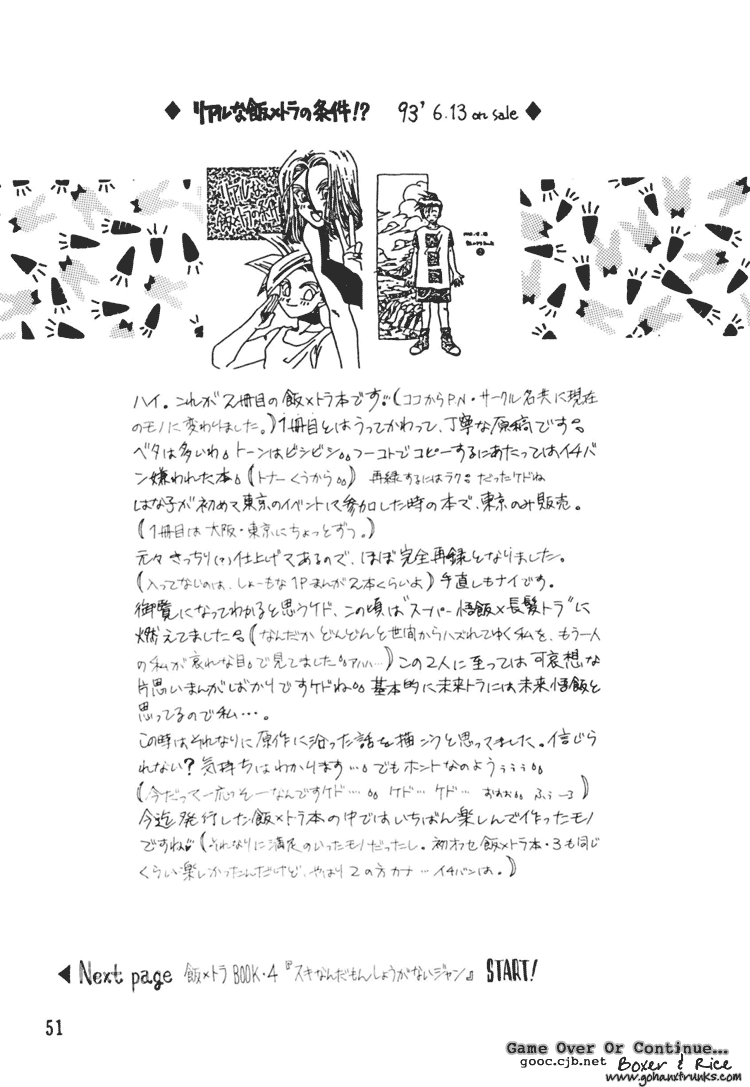 ◆ リアルな飯×トラの条件!? 93' 6.13 on sale ◆
ハイ。これが2冊目の飯×トラ本です。(ココからP.N・サークル名共に現在
のモノに変わりました。)1冊目とはうってかわって、丁寧な原稿です。
ベタは多いわ。トーンはビシビシ。フーコトでコピーするにあたってはイチバ
ン嫌われた本。(トナーくうから。)再録するにはラク。だったケドね
はな子が初めて東京のイベントにて参加した時の本で、東京のみ販売。
(1冊目は大阪・東京にちょっとずつ。)
元々きっちり(?)仕上げてあるので、ほぼ完全再録となりました。
(入ってないのは、しょーもな1Pまんが2本くらいよ)手直しもナイです。
御覧になってわかると思うケド、この頃は"スーパー悟飯×長髪トラ"に
燃えてました。(なんだかどんどんと世間からハズれてゆく私を、もう一人
の私が哀れな目。で見てました。アハハ…)この2人に至っては可哀想な
片思いまんがばかりですケドね。基本的に未来トラには未来悟飯と
思ってるので私…。
この時はそれなりに原作に沿った話を描こうと思ってました。信じら
れない?気持ちはわかります…。でもホントなのようぅぅぅ。
(今だって一応そーなんですケド…。ケド…ケド…おぉぉ。ふぅ…)
今迄発行した飯×トラ本の中ではいちばん楽しんで作ったモノ
ですね(それなりに満足のいったモノだったし。初めわせ飯×トラ本・3も同じ
くらい楽しかったんだけど、やはり2の方カナ…イチバンは。)
◀ Next page 飯×トラBOOK・4『スキなんだもんしょうがないジャン』START!
51
Game Over Or Continue...
gooc.cjb.net Boxer & Rice
www.gohanxtrunks.com